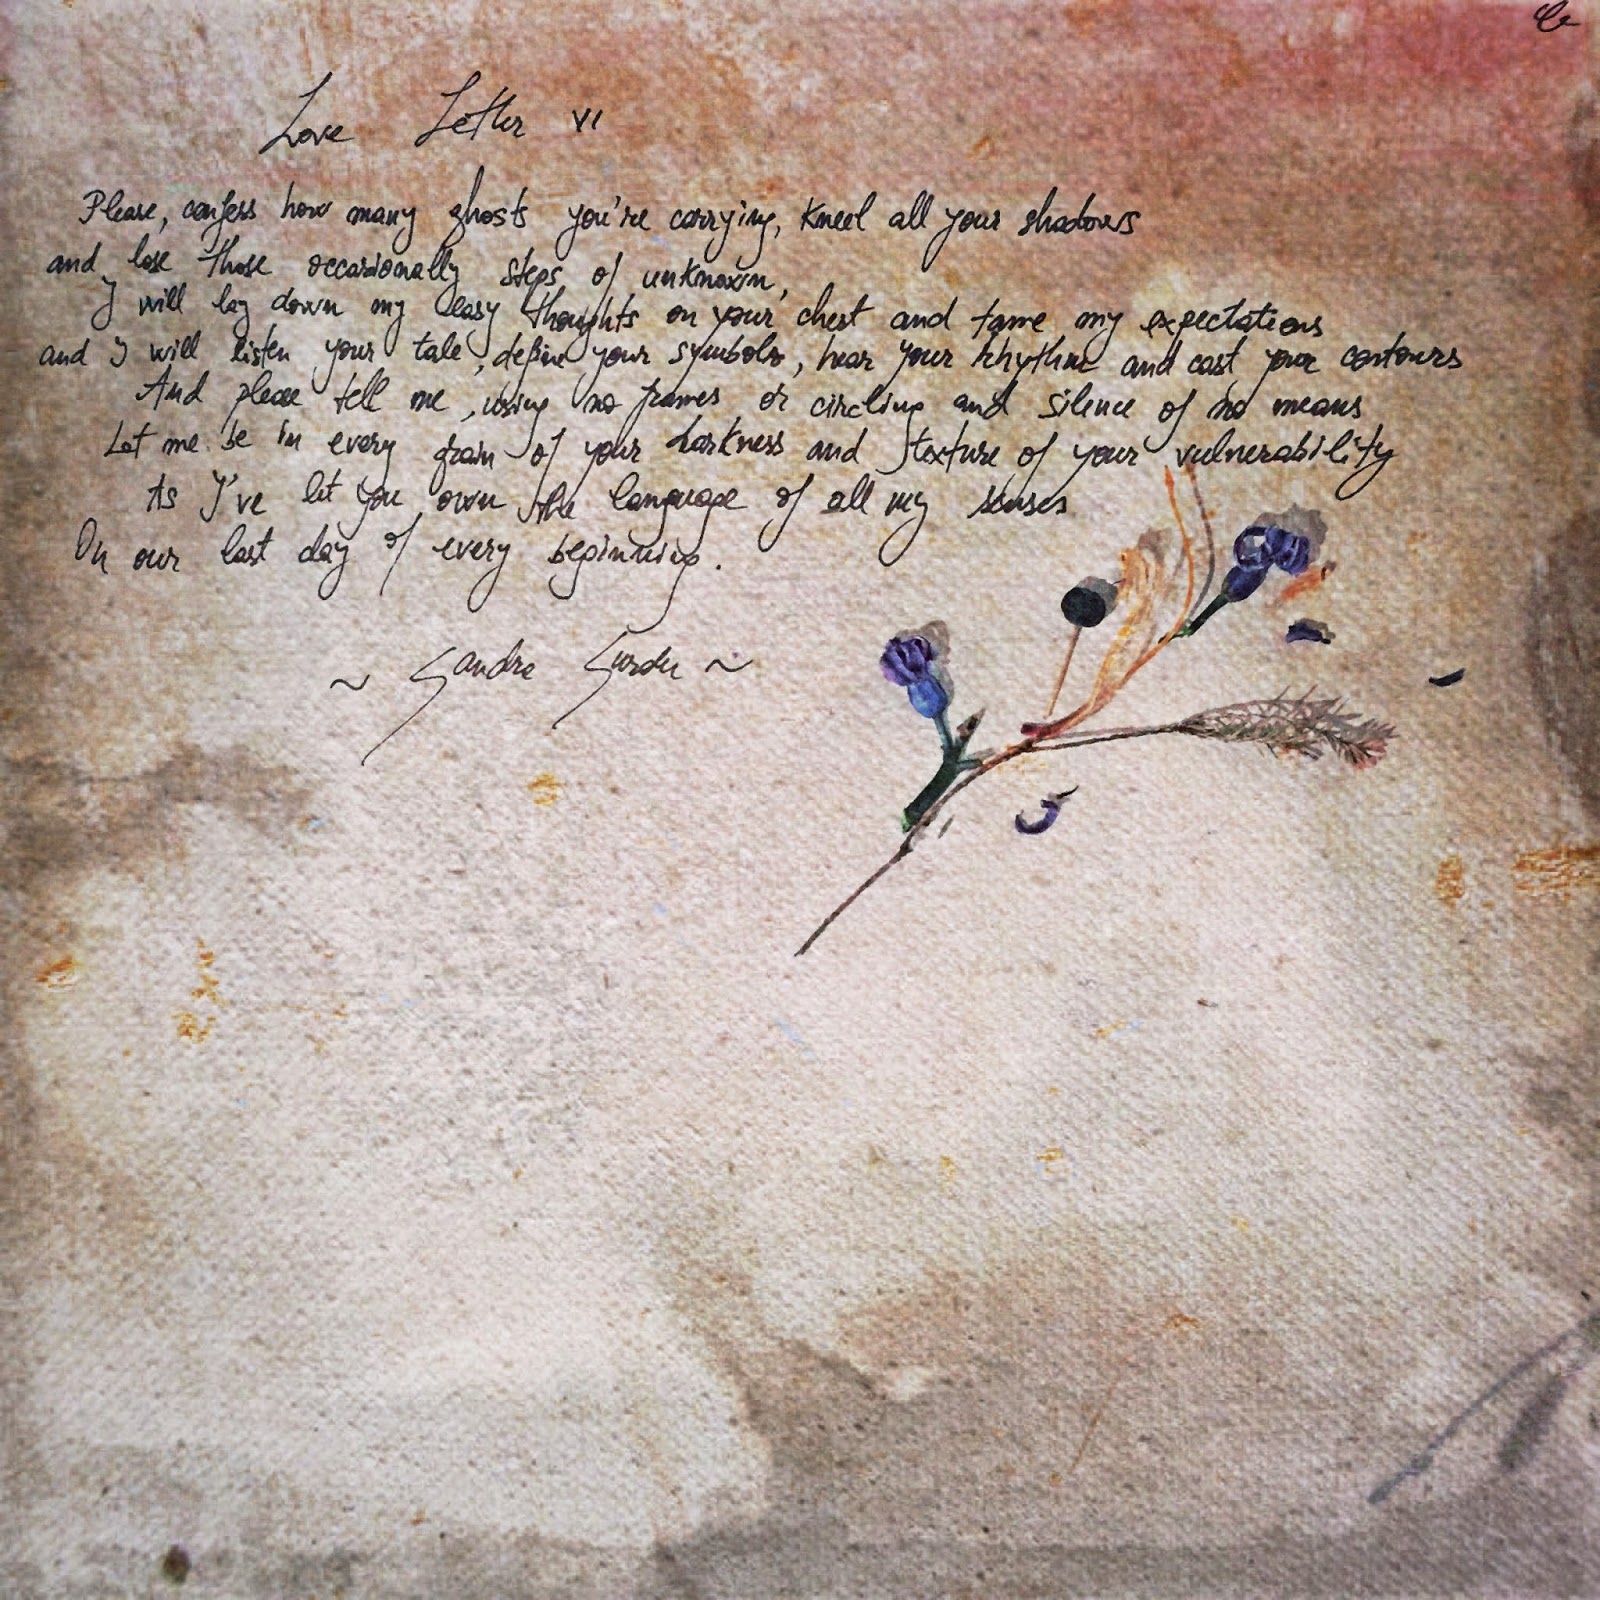 Love Letter VI
Please, confess how many ghosts you're carrying, kneel all your shadows
and lose those occasionally steps of unknown,
I will lay down my easy thoughts on your chest and tame my expectations
and I will listen your tale, define your symbols, hear your rhythm and cast your contours
And please tell me, using no frames or circling and silence of no means
Let me be in every grain of your darkness and texture of your vulnerability
As I've let you own the language of all my senses
On our last day of every beginning.
~ Sandra Surdu ~